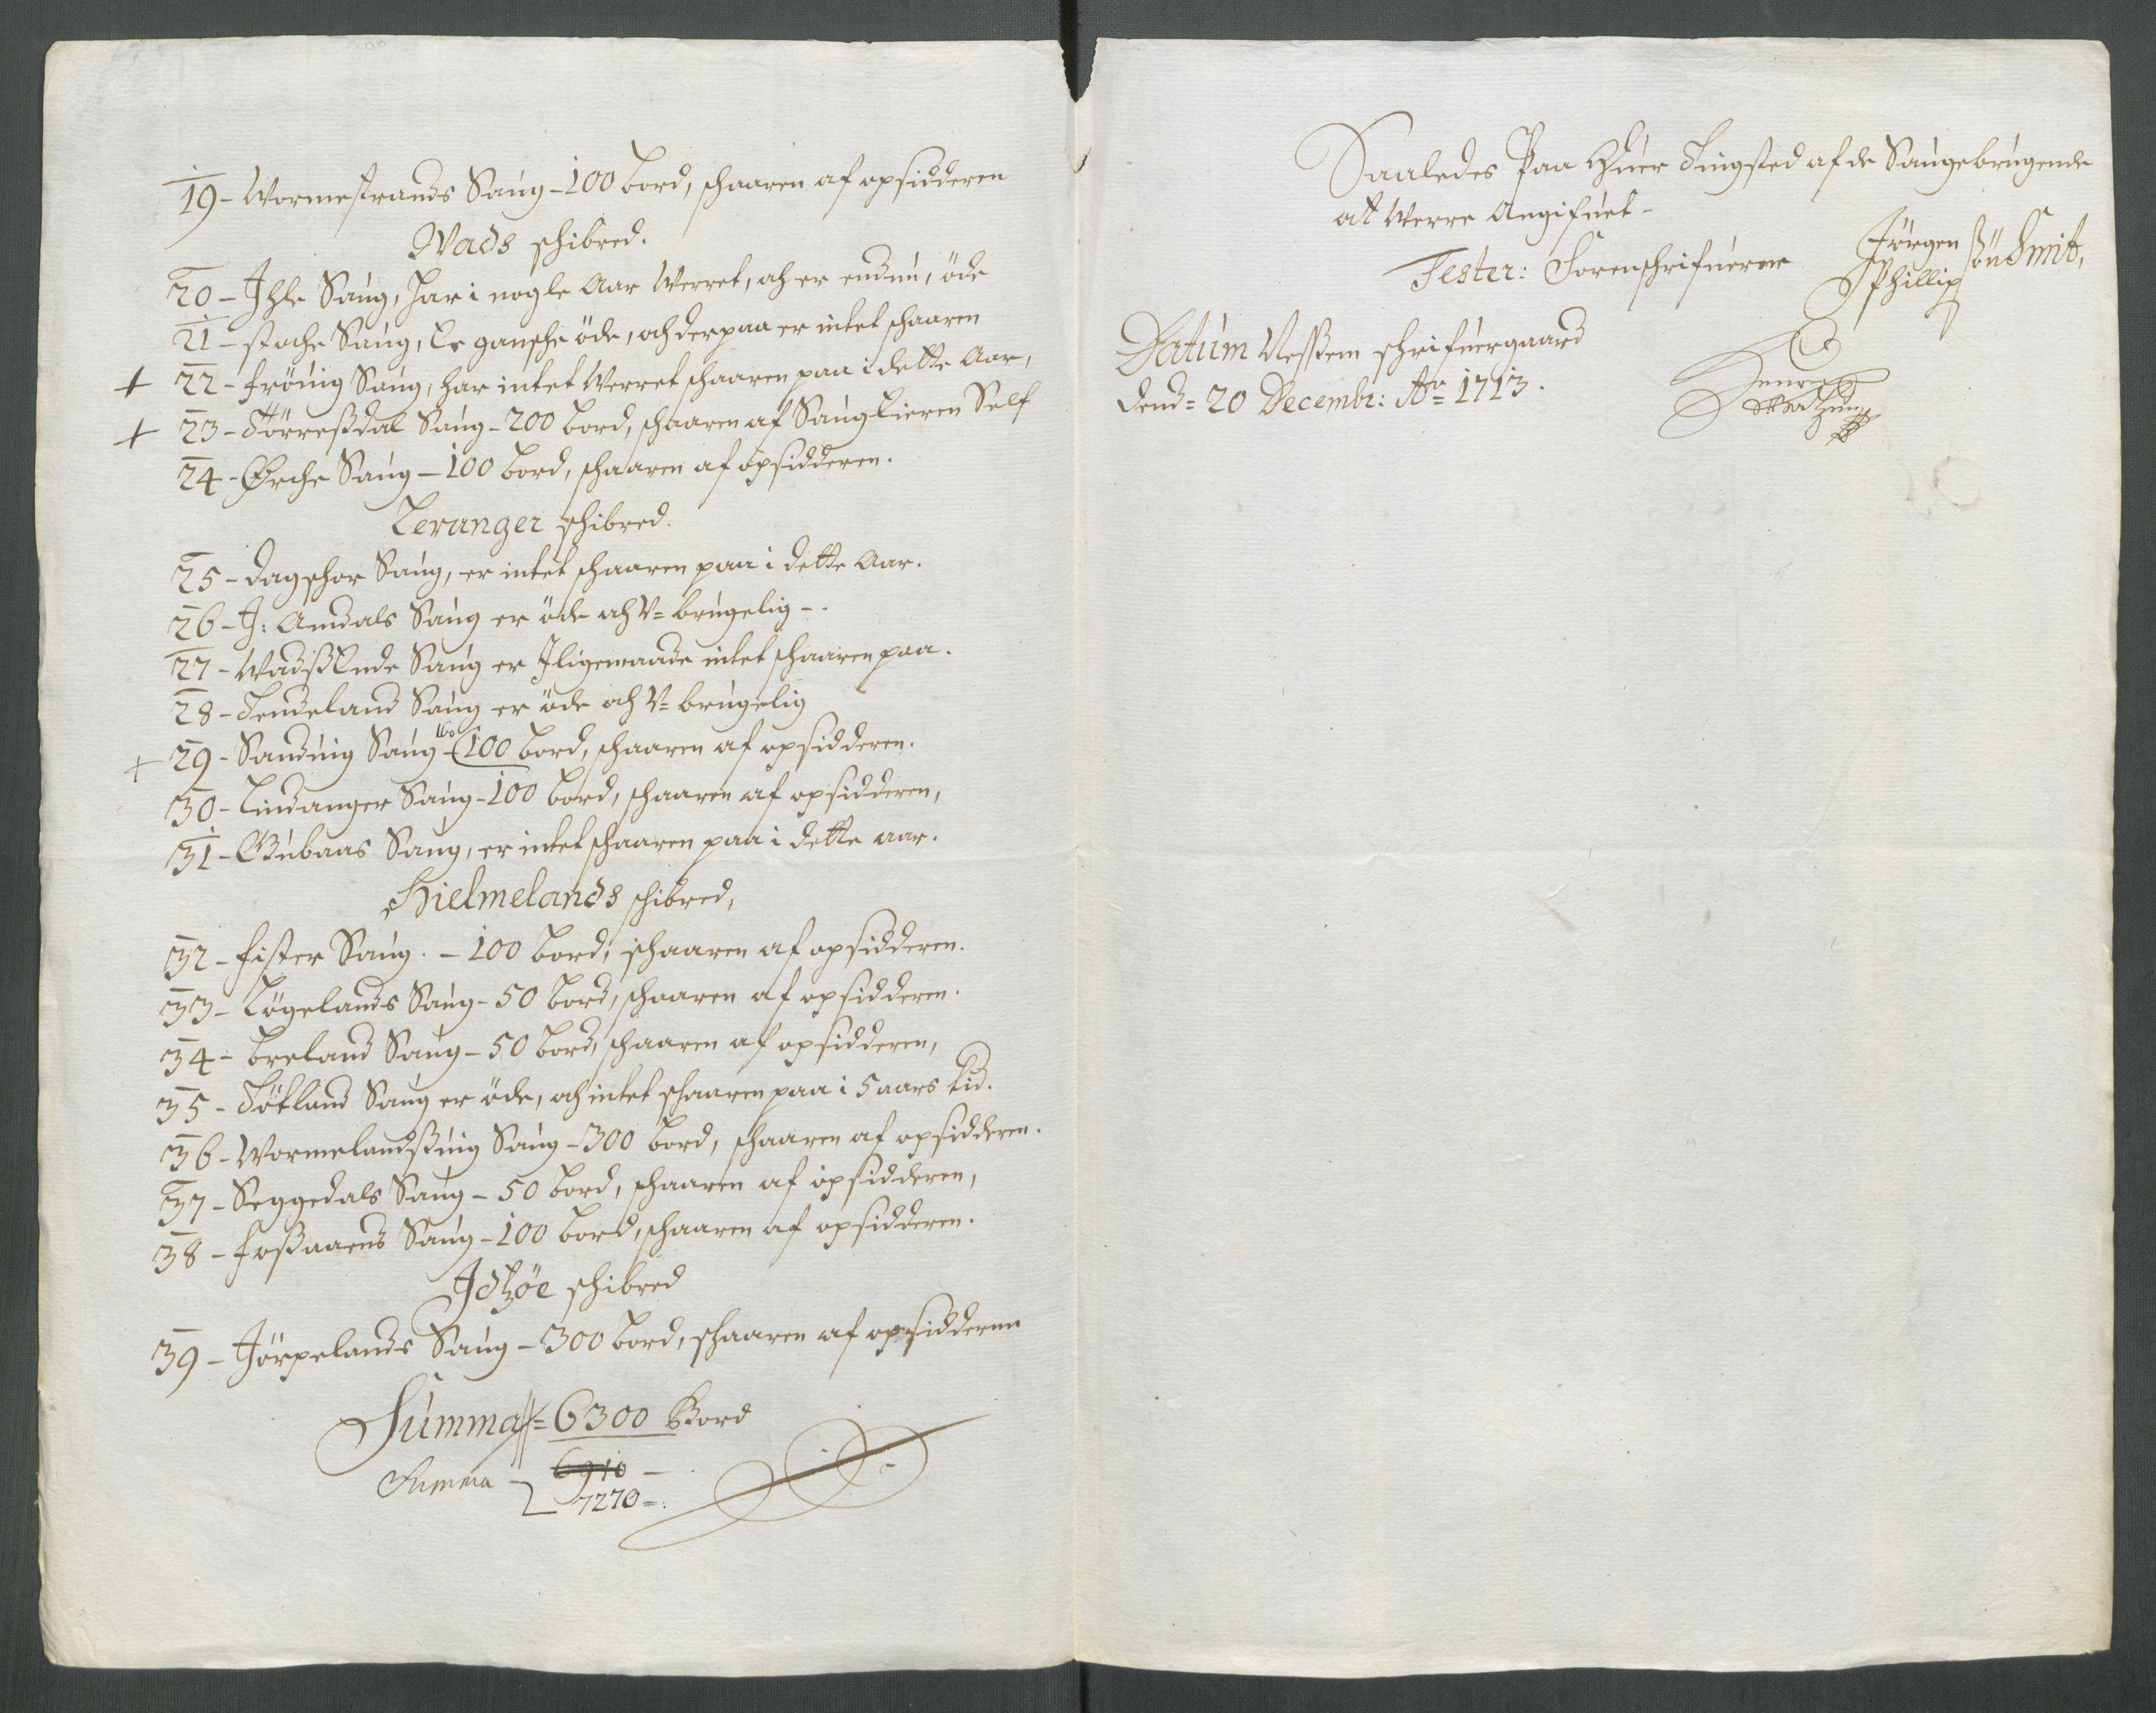 19 - Wormestrands Saug - 100 bord, schaaren af opsidderen
Wads schibred.
20 - Ihle Saug, har i nogle Aar Werret, och er endnu, öde
21 - stoche Saug, Er gansche öde, och derpaa er intet schaaren
+ 22 - Fröuig Saug, har intet Werret schaaren paa i dette Aar,
+ 23 - Törresdal Saug - 200 bord, schaaren af Saug Eieren Self
24 - Ørche Saug - 100 bord, schaaren af opsidderen.
Leranger schibred.
25 - Dagschor Saug, er intet schaaren paa i dette Aar.
26 - I: Amdals Saug er öde och V= brugelig -
27 - Wadß Ende Saug er Iligemaade intet schaaren paa.
28 - Tendeland Saug er öde och V= brugelig
+ 29 - Sanduig Saug - 160 (100 bord, schaaren af opsidderen.
30 - Lindanger Saug - 100 bord, schaaren af opsidderen,
31 - Gubaas Saug, er intet schaaren paa i dette aar.
Hielmelands schibred,
32 - Fister Saug. - 100 bord, schaaren af opsidderen.
33 - Løgelands Saug - 50 bord, schaaren af opsidderen.
34 - breland Saug - 50 bord, schaaren af opsidderen,
35 - Tötland Saug er öde, och intet schaaren paa i 5 aars tid.
36 - Wormelandßuig Saug - 300 bord, schaaren af opsidderen.
37 - Seggedals Saug - 50 bord, schaaren af opsidderen,
38 - Foßaaens Saug - 100 bord, schaaren af opsidderen.
Idtzöe schibred
39 - Jörpelands Saug - 300 bord, schaaren af opsidderenn
Summa = 6300 Bord
Summa - 6910 -
7270 =.
Saaledes Paa Huer Tingsted af de Saugebrugende
at Werre Angifuet -
Tester: Sorenschrifueren
Jörgen
Phillip ßön Smit,
Datum Neßßem schrifuergaard
Dend = 20 Decembr: Ao = 1713.